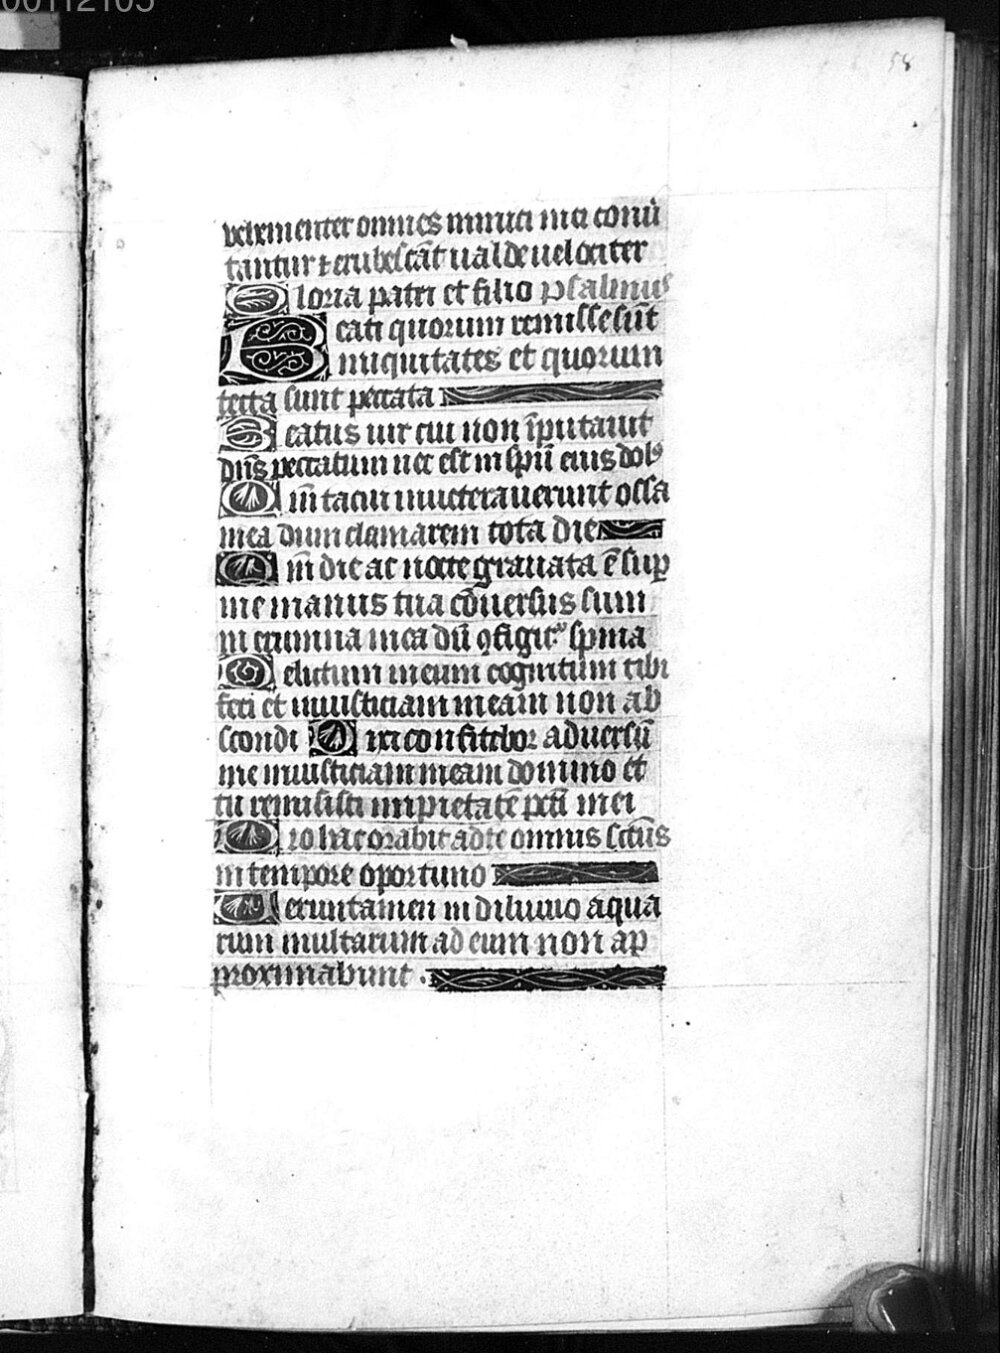 00112105
58
vehementer omnes inimici mei conu̅
tantur ⁊ erubesca̅t ualde uelociter
Gloria patri et filio psalmus
Beati quorum remisse su̅t
iniquitates et quorum
tecta sunt peccata
Beatus uir cui non i̅putauit
dn̅s peccatum nec est in spu̅ eius dolꝰ
Qm̅ tacui inueterauerunt ossa
mea dum clamarem tota die
Qm̅ die ac nocte grauata e̅ suꝑ
me manus tua co̅uersus sum
in erumna mea du̅ ꝯfigitᷣ spina
Delictum meum cognitum tibi
feci et iniusticiam meam non ab
scondi Dixi confitebor aduersu̅
me iniusticiam meam domino et
tu remisisti impietate̅ pcti̅ mei
Pro hac orabit ad te omnis sctu̅s
in tempore oportuno
Ueruntamen in diluuio aqua
rum multarum ad eum non ap
proximabunt .